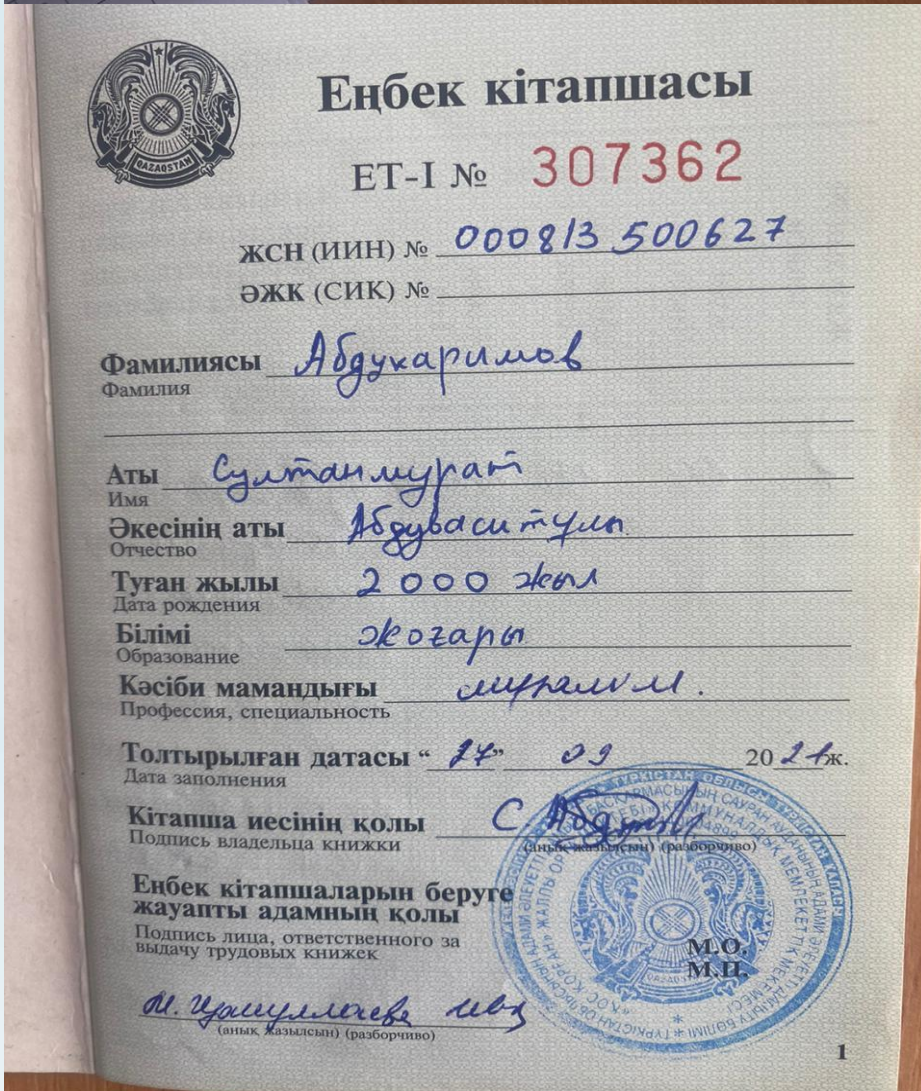 QAZAQSTAN
Еңбек кітапшасы
ET-I № 307362
ЖСН (ИИН) № 000813 500627
ӘЖК (СИК) №
Фамилиясы Абдукаримов
Фамилия
Аты Султанмурат
Имя
Әкесінің аты Абдуваситұлы
Отчество
Туған жылы 2000 жыл
Дата рождения
Білімі жоғары
Образование
Кәсіби мамандығы мұғалім.
Профессия, специальность
Толтырылған датасы “27” 09 2021ж.
Дата заполнения
Кітапша иесінің қолы С
Подпись владельца книжки
(анық жазылсын) (разборчиво)
Еңбек кітапшаларын беруге
жауапты адамның қолы
Подпись лица, ответственного за
выдачу трудовых книжек
М.О.
М.П.
М.
(анық жазылсын) (разборчиво)
1